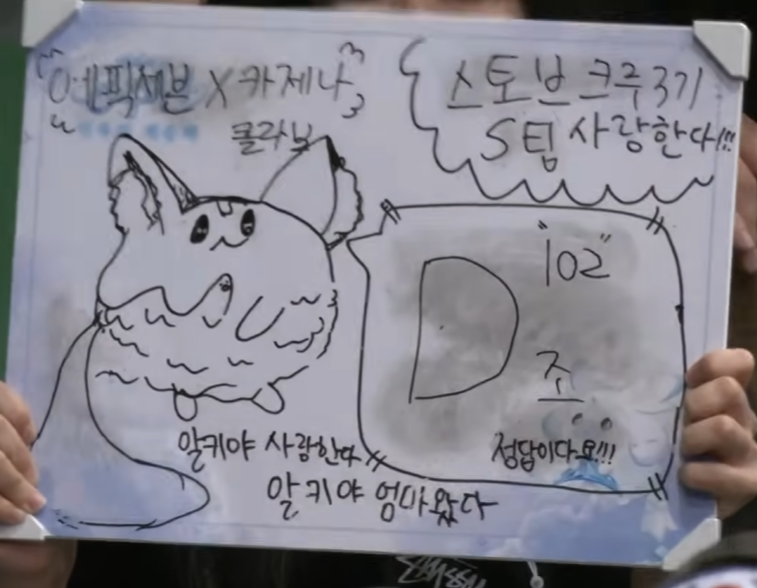 "에픽세븐 X 카제나"
콜라보
스토브 크루 3기
S팀 사랑한다!!!
"102"
D
조
정답이다묘!!!
알키야 사랑한다
알키야 엄마왔다